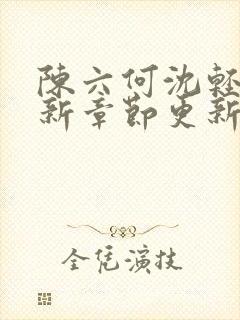 陳六何沈輕
新章節更新
全凭演技